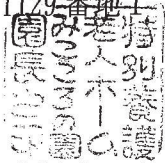 1129番地
特別養護
老人ホーム
みこころの園
園長